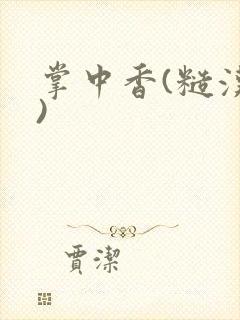 掌中香(糙漢
)
賈潔